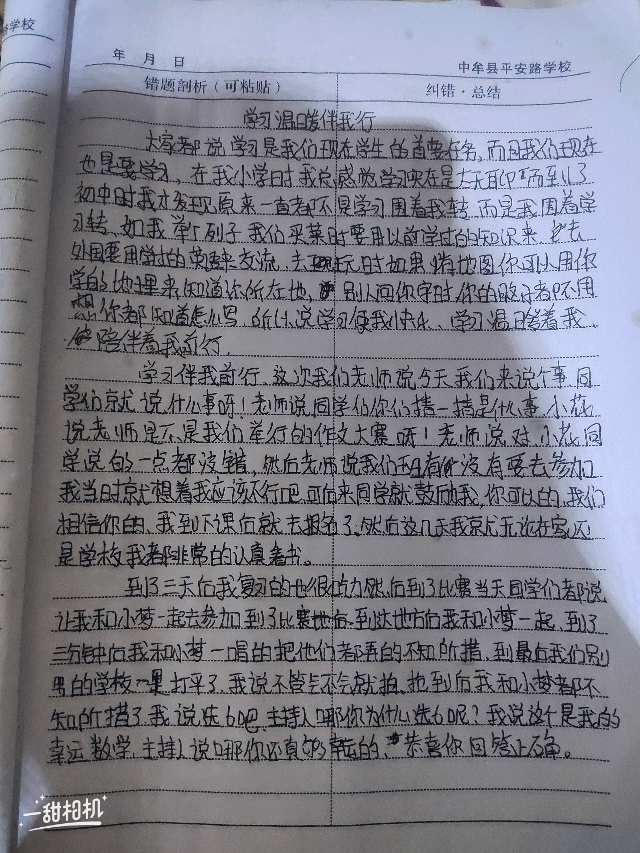 学校
年 月 日
中牟县平安路学校
错题剖析(可粘贴)
纠错·总结
学习温暖伴我行
大家都说学习是我们现在学生的首要任务,而且我们现在
也是要学习,在我小学时我总感觉学习实在是太无聊了而到了
初中时我才发现原来一直都不是学习围着我转而是我围着学
习转,如我举个列子我们买菜时要用以前学过的知识来,去
外国要用学过的英语来交流,去玩时如果看地图你可以用你
学的地理来知道你所在地,别人问你字时你的脑子都不用
想你都知道怎么写 所以说学习使我快乐、学习温暖着我
陪伴着我前行.
学习伴我前行,这次我们老师说今天我们来说个事,同
学们就说什么事呀!老师说同学们你们猜一猜是什么事,小花
说老师是不是我们举行的作文大赛呀!老师说对,小花同
学说的一点都没错,然后老师说我们班有没有要去参加
我当时就想着我应该不行吧,可后来同学就鼓励我,你可以的,我们
相信你的、我到下课后就去报名了、然后这几天我就无论在家还
是学校我都非常的认真看书。
到了三天后我复习的也很努力然后到了比赛当天同学们都说
让我和小梦一起去参加到了比赛地后到达地方后我和小梦一起,到了
三分钟后我和小梦一唱的把他们都弄的不知所措,到最后我们别
的学校打平了,我说不管会不会就抢,抢到后我和小梦都不
知所措了,我说选6吧,主持人哪你为什么选6呢?我说这个是我的
幸运数学,主持人说哪你还真够幸运的,恭喜你回答正确。
一甜相机